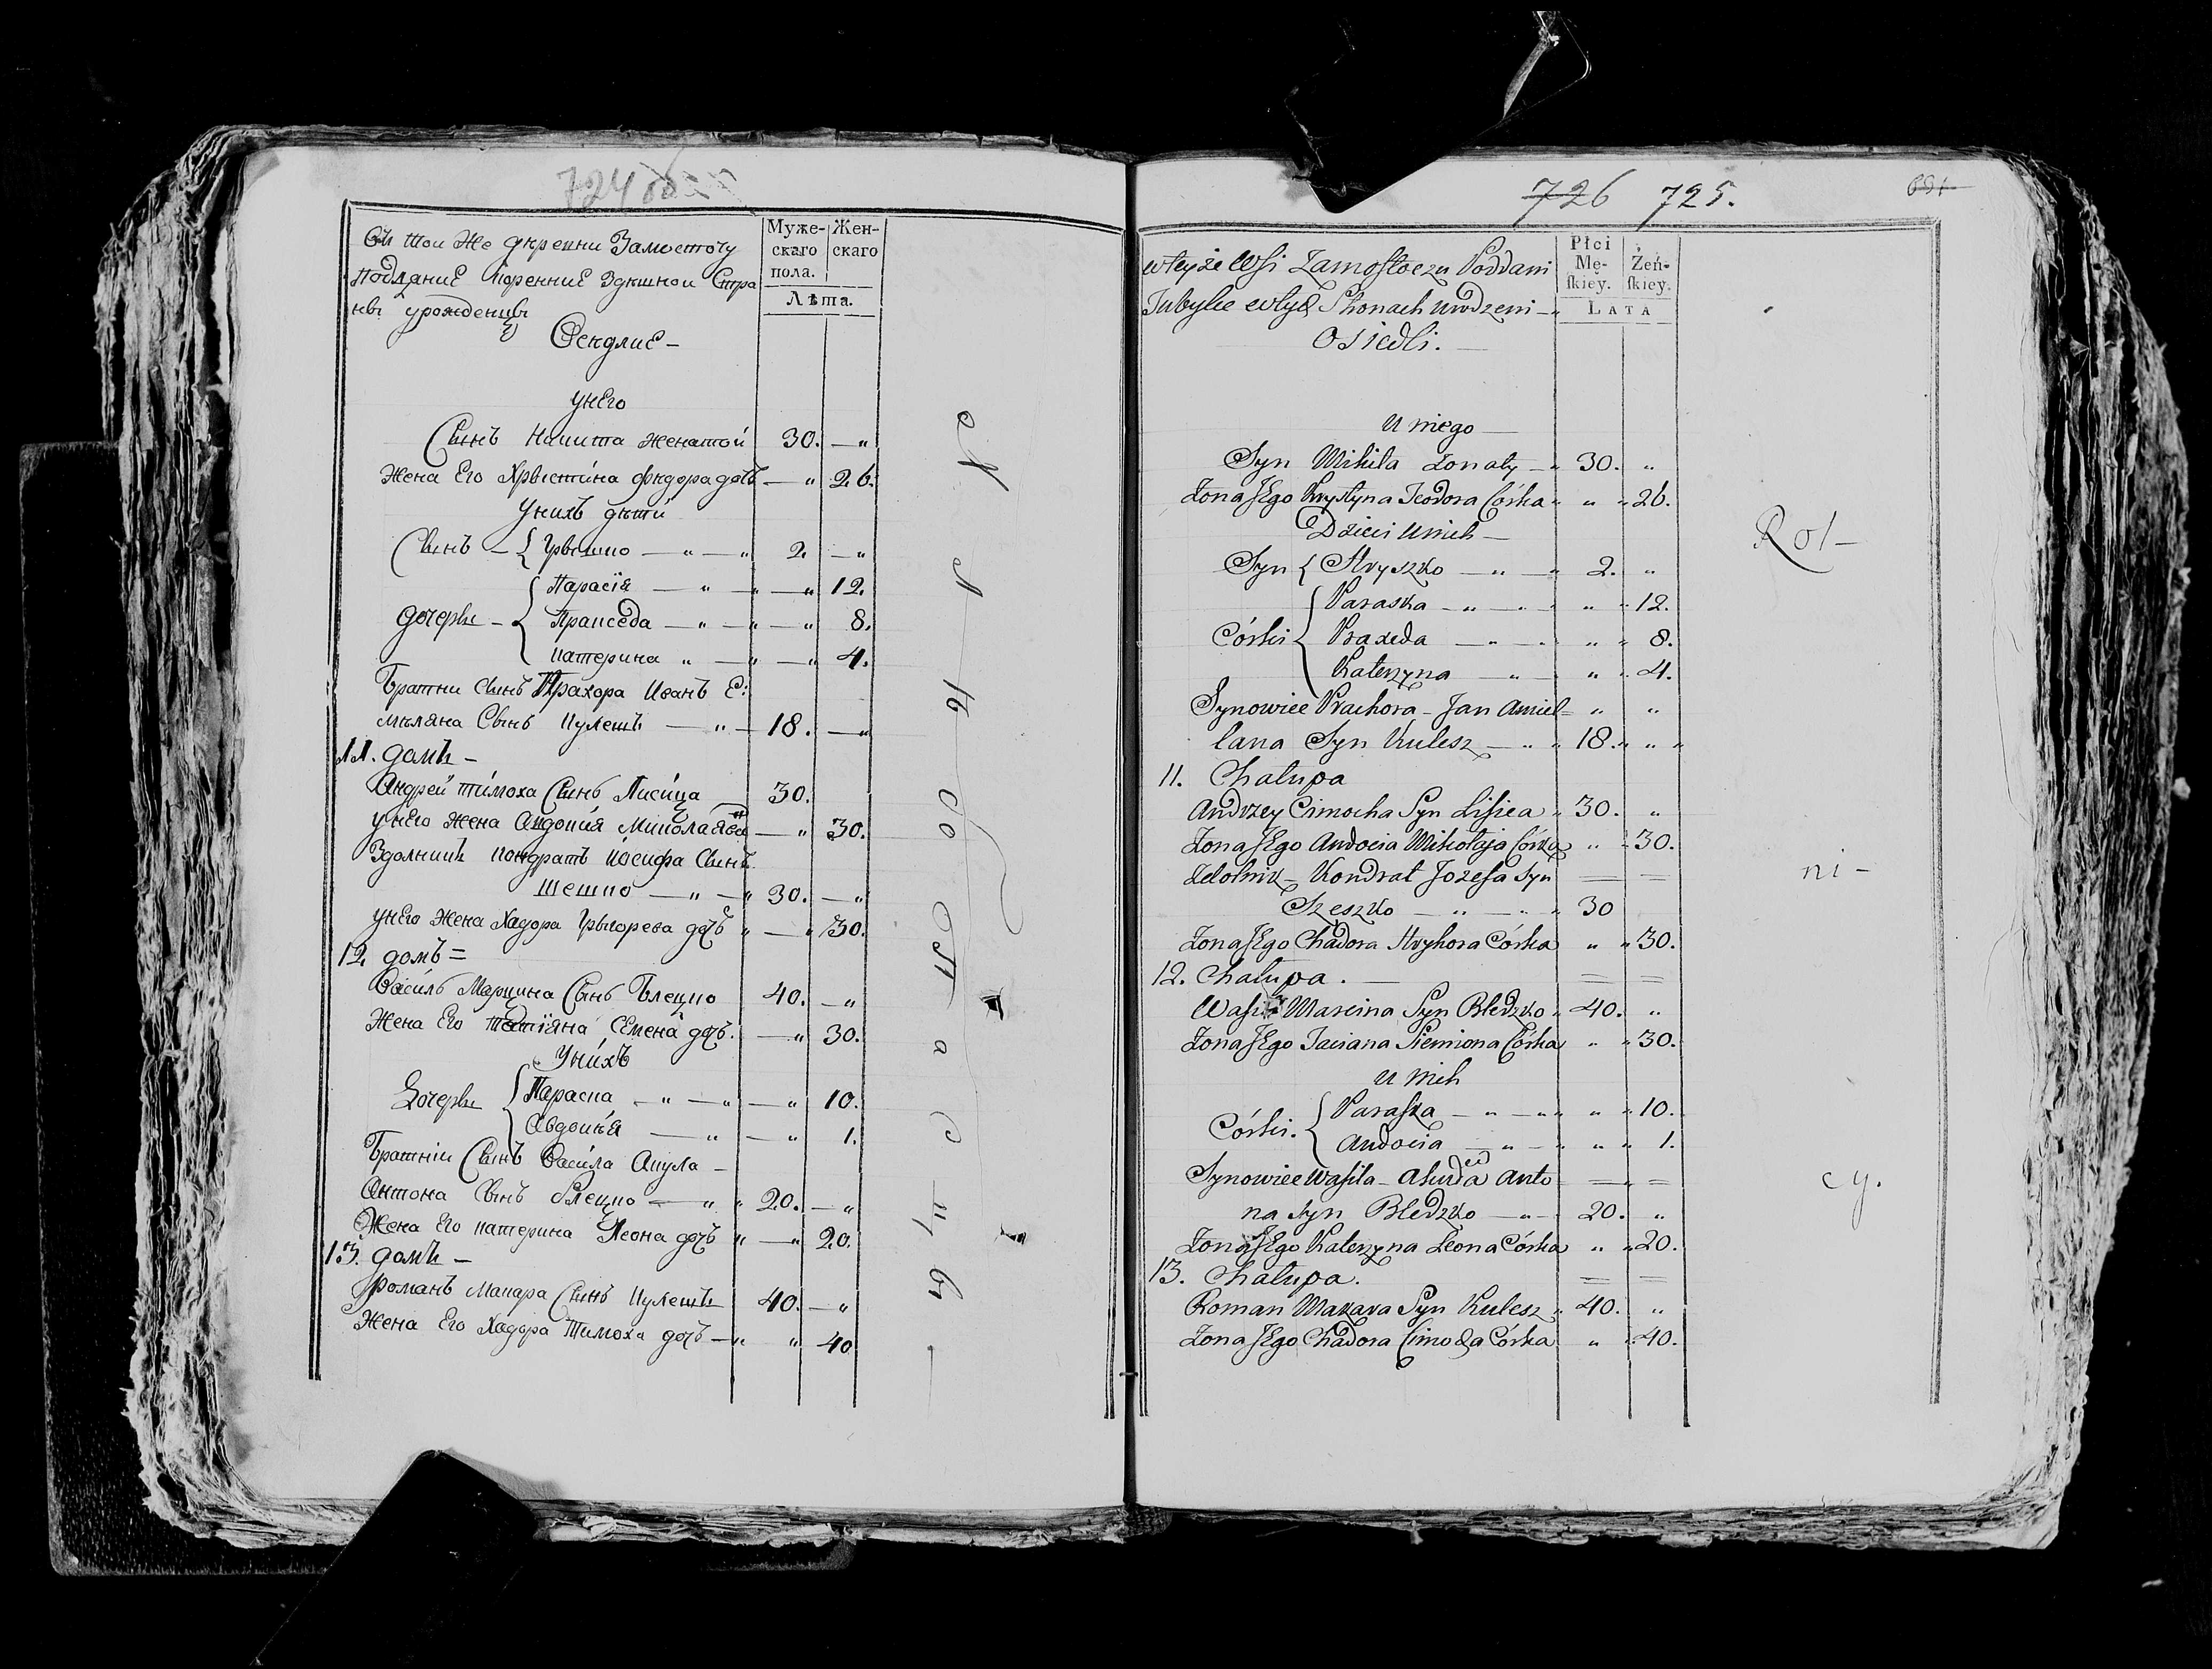 724 об
Муже- Жен-
скаго скаго
пола.
Лѣта.
Сеи тои же деревни Замосточу
Подданые коренние здешнои Стра
нѣ урожденцы
Оседлие -
унего
Сынъ Никита женатой 30. — „
Жена Его Христина Федора дочь — „ 26.
Унихъ дети
Сынъ - { Грышко — „ — „ 2. — „
Парасія — „ — „ — „ 12.
Дочеры - { Пракседа — „ — „ — „ 8.
Катерина „ — „ — „ 4.
Братни Сынъ Прахора Иванъ Е:
мляна Сынъ Кулешъ — „ — 18. — „
11. домъ -
Андрей Тимоха Сынъ Лисица 30.
унего жена Авдокія Миколая — „ 30.
Здолникъ Кондратъ Іосифа Сынъ
Шешко — „ — „ 30. — „
унего жена Хадора Грыгорева дочь „ — „ 30.
12. домъ =
Василь Марцина Сынъ Блецко 40. — „
Жена Его Татіяна Семена дочь. — „ 30.
Унихъ
Дочеры { Параска — „ — „ — „ 10.
Авдокія — „ — „ 1.
Братніи Сынъ Васила Акула -
Антона Сынъ Блецко — „ „ 20. — „
Жена Его Катерина Леона дочь „ — „ 20.
13. домъ -
Романъ Макара Сынъ Кулешъ 40. — „
Жена Его Хадора Тимоха дочь — „ „ 40
726 725.
691
Płci
Mę- Żeń-
skiey. skiey.
LATA
wteyże Wsi Zamostoczu Poddani
Tubylce wtych Stronach urodzeni — „
Osiedli. —
U niego —
Syn Mikita Żonaty — „ 30. „
Żona JEgo Krystyna Teodora Córka „ „ „ 26.
Dzieci U nich —
Syn { Hryszko — „ — „ 2. „
Paraska — „ — „ „ „ 12.
Córki { Praxeda — „ — „ „ „ 8.
Katerzyna — „ — „ „ 4.
Synowiec Prachora - Jan Amiel= „ „
lana Syn Kulesz — „ „ 18. „ „ „
11. Chałupa
Andrzey Cimocha Syn Lisica „ 30. „
Żona JEgo Audocia Mikołaja Córka „ „ 30.
Zdolnik - Kondrat Jozefa Syn = =
Szeszko — „ — „ „ 30
Żona JEgo Chadora Hryhora Córka „ „ 30.
12. Chałupa. — = =
Wasil Marcina Syn Bledzko „ 40. „
Żona JEgo Taciana Siemiona Córka „ „ 30.
U nich
Córki. { Paraska — „ — „ „ „ „ 10.
Audocia — „ — „ „ „ 1.
Synowiec Wasila - Anto = „ =
na Syn Bledzko — „ — „ 20. „
Żona JEgo Katerzyna Leona Córka „ „ 20.
13. Chałupa. = =
Roman Makara Syn Kulesz „ 40. „
Żona JEgo Chadora Cimocha Córka „ „ 40.
Rol-
ni-
cy.